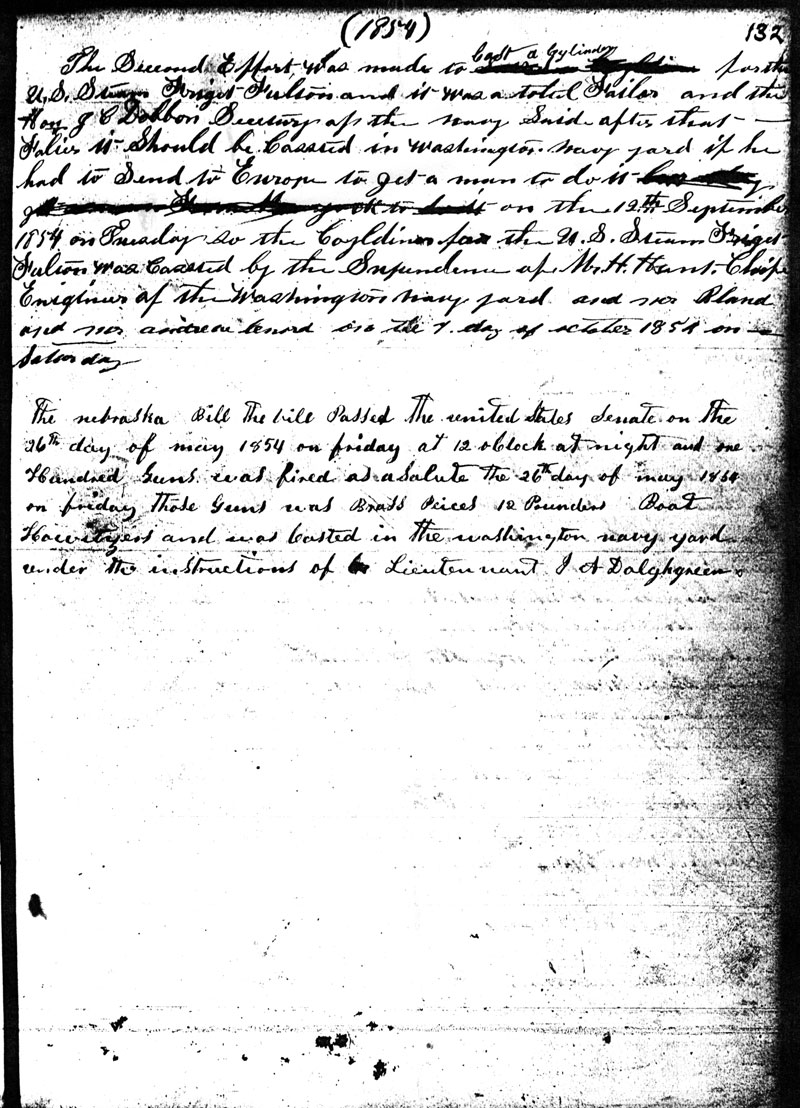 (1854) 132
Cast a Cylinder
The Second Effort, Was made to for the
U.S. Steam Friget Fulson and it was a totel Failor and the
Hon J C Dobbon Secetury of the navy Said after that
Falier it Should be Cassted in Washington navy yard if he
had to Send to Europe to get a man to do it
on the 12th September
1854 on Tuesday so the Coyldiner for the U.S. Steam Friget
Fulson was Cassted by the Supendence of Mr. H. Hunt Chief
Enigineer of the Washington navy yard and mr Bland
and mr andrew on the 7. day of octoter 1854 on
Saturday
The nebraska Bill The bill Passed the united States Senate on the
26th day of may 1854 on friday at 12 oClock at night and one
Handred Guns was fired as a Salute the 26th day of may 1854
on friday those Guns was Brass Peices 12 Pounders Boat
Howityers and was Casted in the washington navy yard
under the instructions of Lieutennant J A Dalghgreen